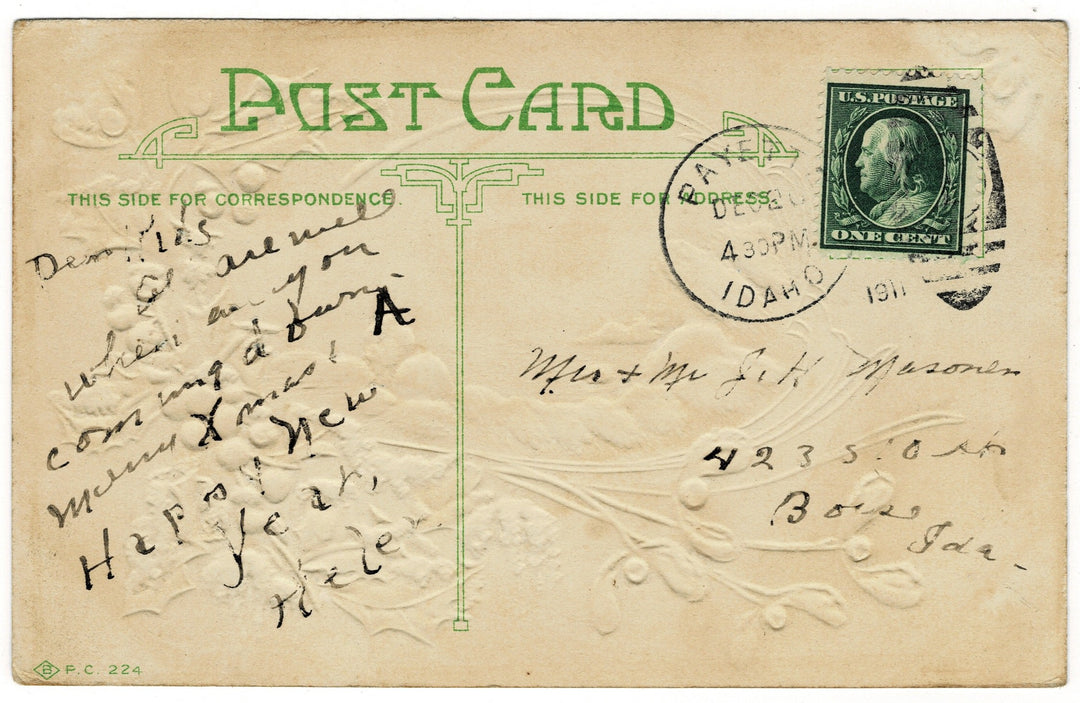 POST CARD
THIS SIDE FOR CORRESPONDENCE.
THIS SIDE FOR ADDRESS.
U.S. POSTAGE
ONE CENT
PAYET
DEC 2
4 30 PM.
IDAHO
1911
Dear Kids
All are well
when are you
coming down
Merry Xmas & A
Happy New
Year,
Helen
Mrs + Mr J. H
423 S. O St
Boise
Ida-
B P.C. 224